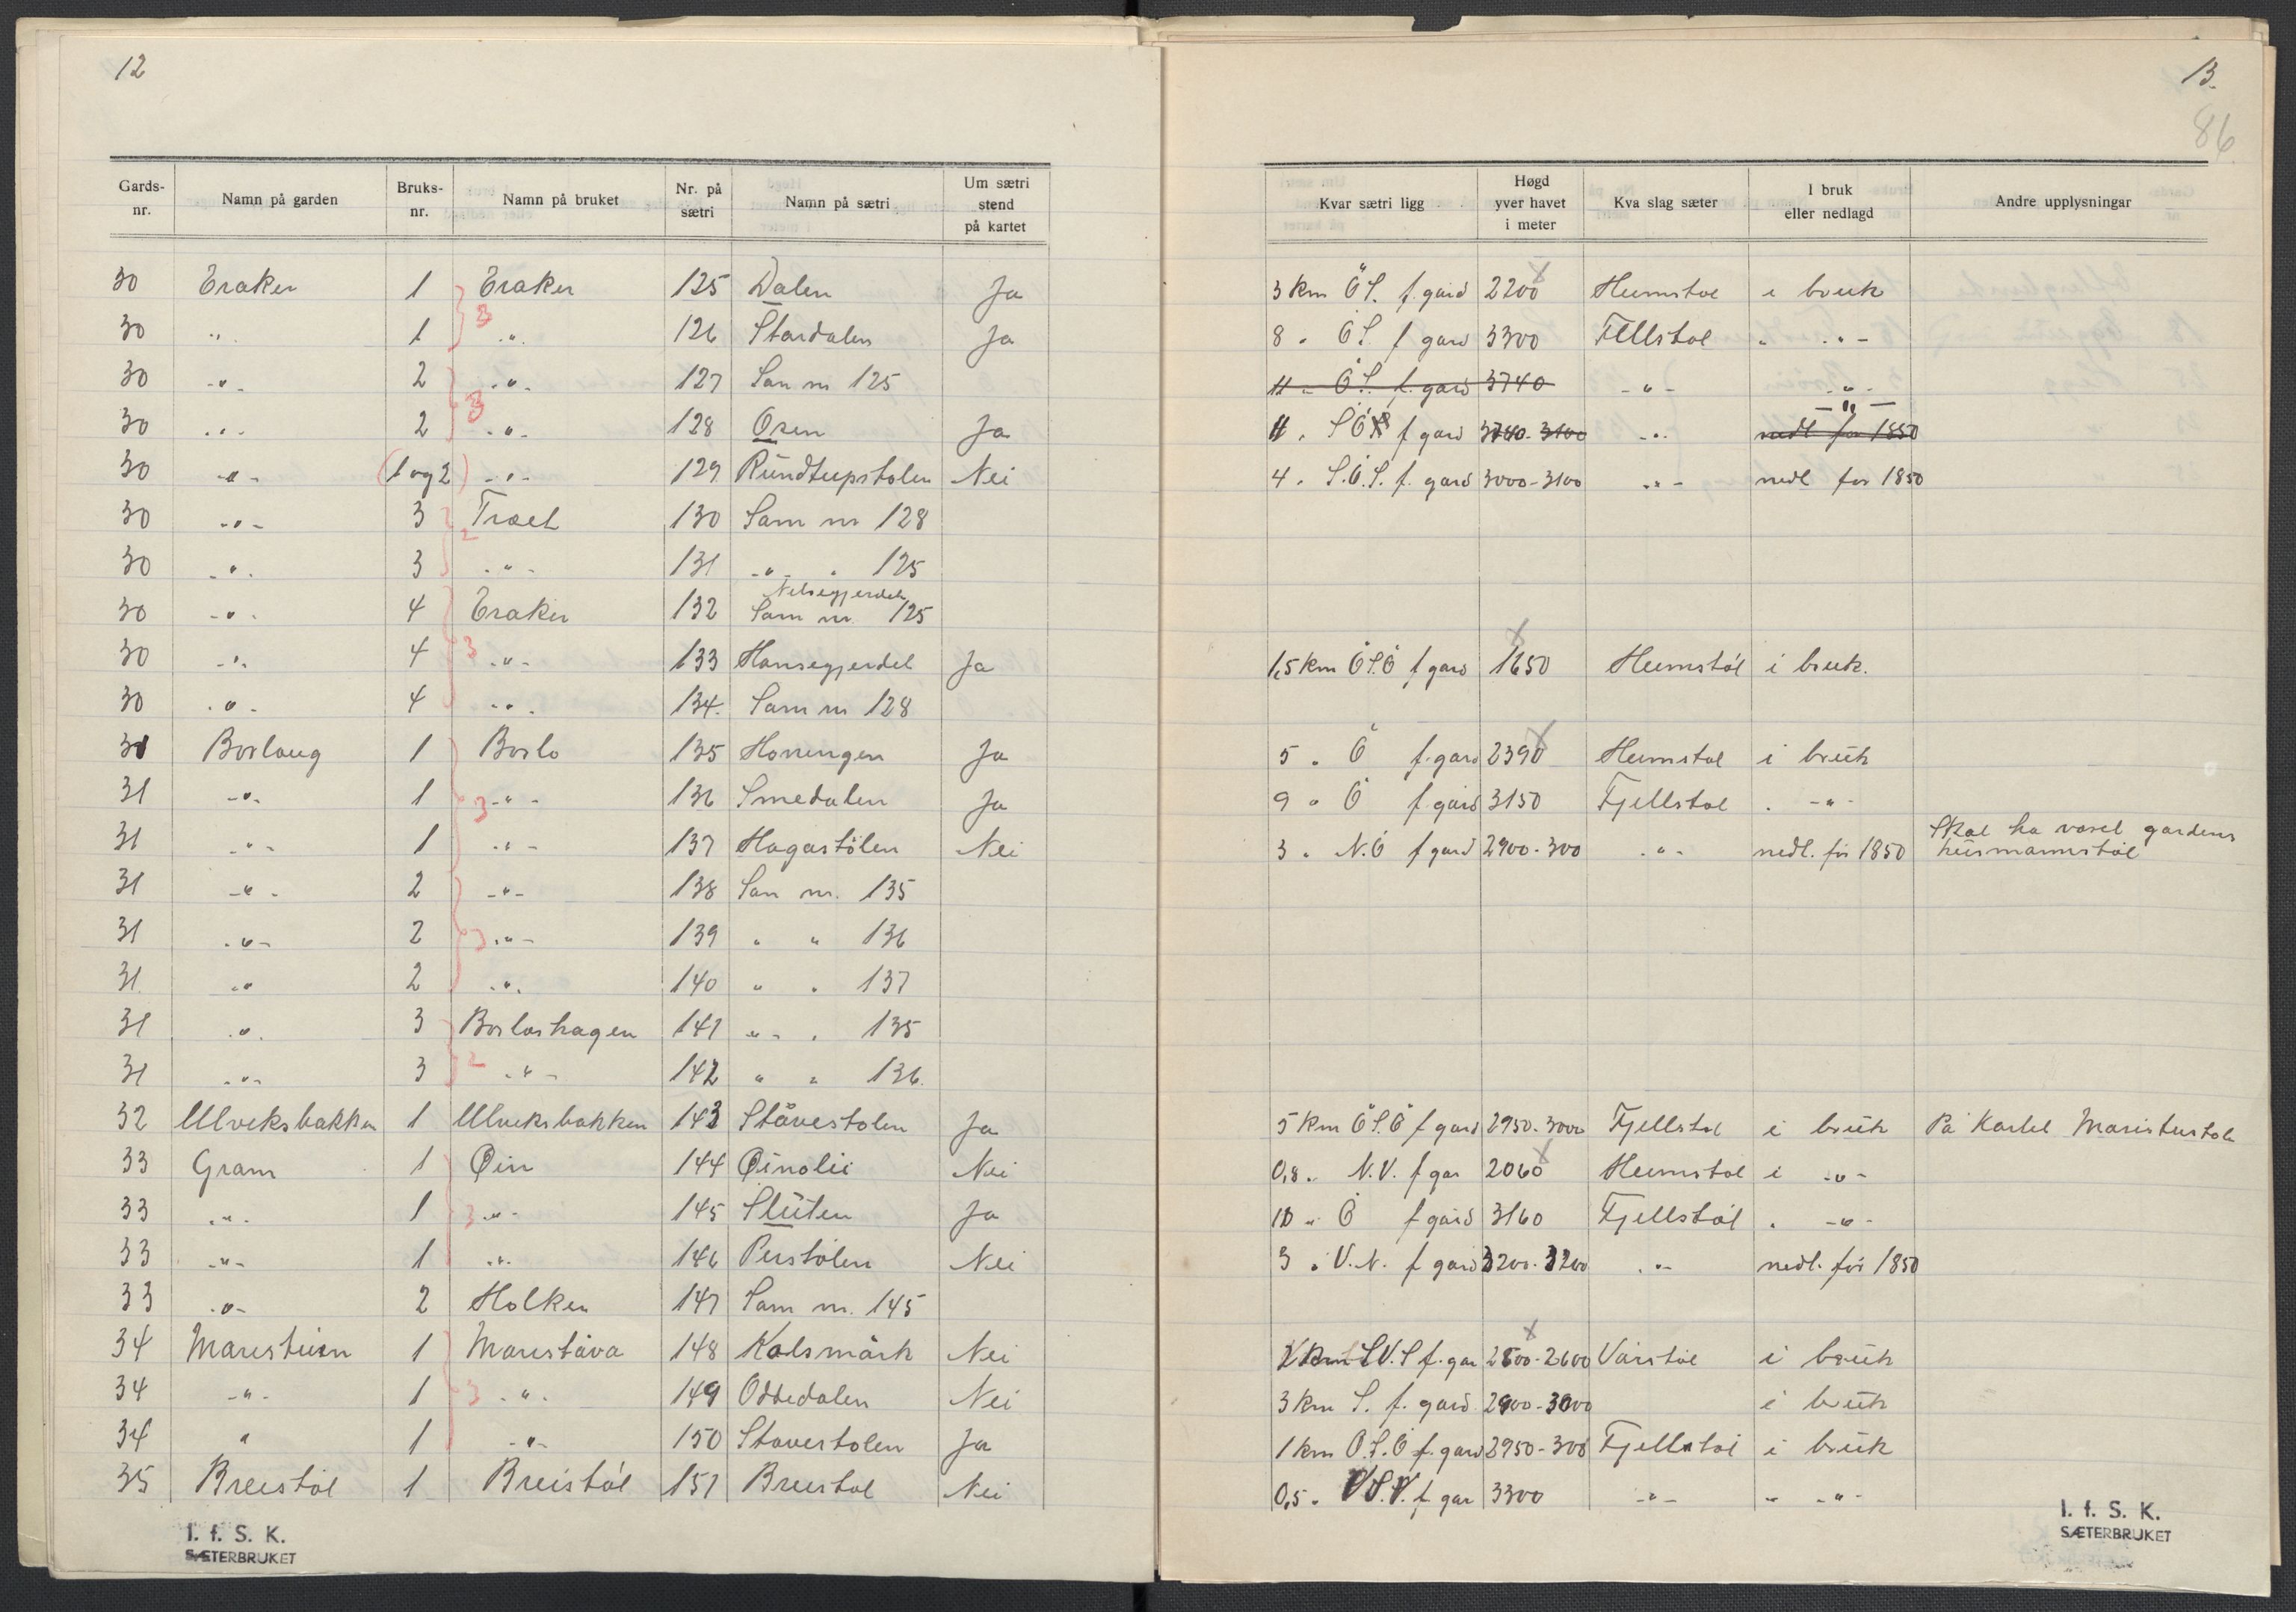 12
Gards-nr. Namn på garden Bruks-nr. Namn på bruket Nr. på sætri Namn på sætri Um sætri stend på kartet
30 Eraker 1 Eraker 125 Dalen Ja
30 -"- 1 -"- 126 Stardalen Ja
30 -"- 2 -"- 127 Sam nr 125
30 -"- 2 -"- 128 Oren Ja
30 -"- (1 og 2) -"- 129 Rundteipstølen Nei
30 -"- 3 Træet 130 Sam nr 128
30 -"- 3 -"- 131 -"- " 125
Nelsegjerdet
30 -"- 4 Eraker 132 Sam nr. 125
30 -"- 4 -"- 133 Hansegjerdet Ja
30 -"- 4 -"- 134. Sam nr 128
31 Borlaug 1 Borlo 135 Honningen Ja
31 -"- 1 -"- 136 Smedalen Ja
31 -"- 1 -"- 137 Hagastölen Nei
31 -"- 2 -"- 138 Sam nr. 135
31 -"- 2 -"- 139 " " 136
31 -"- 2 -"- 140 " " 137
31 -"- 3 Borloshagen 141 " " 135
31 -"- 3 -"- 142 " " 136.
32 Ulveksbakken 1 Ulveksbakken 143 Ståvestolen Ja
33 Gram 1 Øin 144 Øinolii Nei
33 -"- 1 -"- 145 Slüten Ja
33 -"- 1 -"- 146 Perstölen Nei
33 -"- 2 Holken 147 Sam nr. 145
34 Maristuen 1 Maristova 148 Kalsmärk Nei
34 -"- 1 -"- 149 Oddedalen Nei
34 " 1 -"- 150 Stavestolen Ja
35 Breistöl 1 Breistöl 151 Breistol Nei
I. f. S. K.
SÆTERBRUKET
13.
86
Kvar sætri ligg Høgd yver havet i meter Kva slag sæter I bruk eller nedlagd Andre upplysningar
3 km Ö S. f. gard 2200 Heimstøl i bruk
8 " Ö S. f gard 3300 Fellstøl " -"-
11 " Ö S. f. gard 3740 -"- -"-
-"-
11 " S Ö f gard 3740-3100 -"- nedl før 1850
4 " S.Ö.S. f. gard 3000-3100 -"- nedl før 1850
1,5 km Ö S.Ö f gard 1650 Heimstöl i bruk.
5 " Ö f. gard 2390 Heimstøl i brük
9 " Ö f gard 3150 Fjellstøl " -"-
3 " N.Ö f gard 2900-300 -"- nedl. før 1850 Skal ha voret gardens
hüsmannstöl
5 km Ö S.Ö f gard 2950-3000 Fjellstøl i brük På Kartet Maristustøle
0,8 " N.V. f gar 2060 Heimstøl i -"-
10 " Ö f gard 3160 Fjellstøl " -"-
3 " V.N. f gard 3200-3200 -"- nedl. før 1850
2 km S V.S f. gar 2500-2600 Vårstøl i brük
3 km S. f. gard 2900-3000 i brük
1 km Ö S.Ö f. gard 2950-300 Fjellstøl i brük
0,5 " V S.V. f gar 3300 -"- " -"-
I. f. S. K.
SÆTERBRUKET